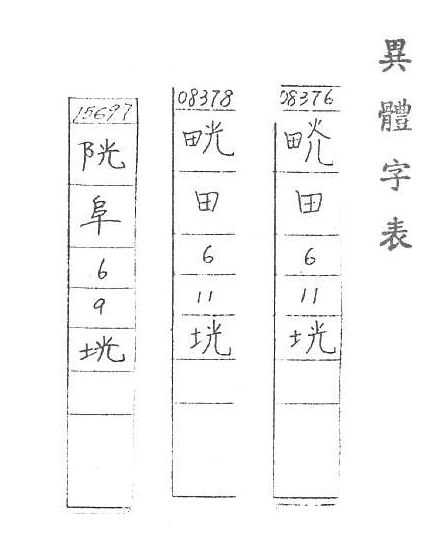 異體字表
08376
田
6
11
垙
08378
田
6
11
垙
15697
阜
6
9
垙